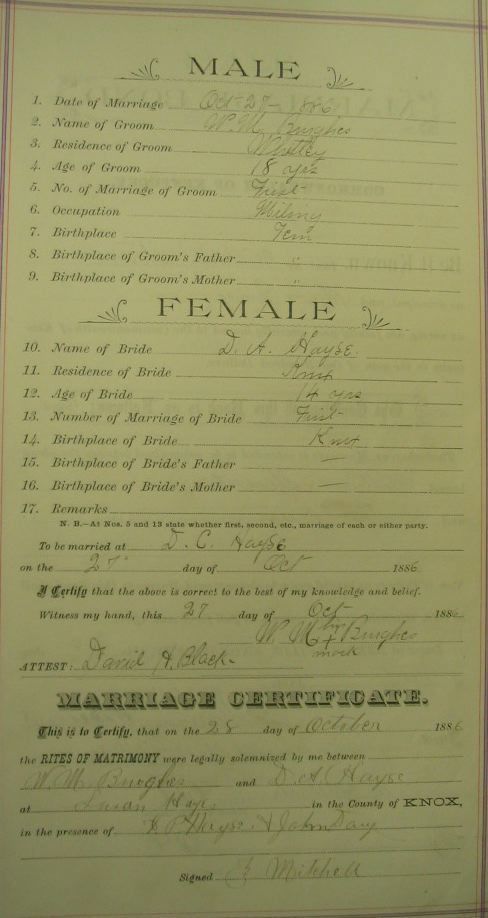 MALE
1. Date of Marriage Oct 27 - 1886
2. Name of Groom W. M. Burghes
3. Residence of Groom Whitley
4. Age of Groom 18 yrs
5. No. of Marriage of Groom First
6. Occupation Mining
7. Birthplace Tenn
8. Birthplace of Groom's Father "
9. Birthplace of Groom's Mother "
FEMALE
10. Name of Bride D. A. Hayse.
11. Residence of Bride Knox
12. Age of Bride 14 yrs
13. Number of Marriage of Bride First
14. Birthplace of Bride Knox
15. Birthplace of Bride's Father —
16. Birthplace of Bride's Mother —
17. Remarks
N. B.—At Nos. 5 and 13 state whether first, second, etc., marriage of each or either party.
To be married at D. C. Hayse
on the 27 day of Oct 1886
I Certify that the above is correct to the best of my knowledge and belief.
Witness my hand, this 27 day of Oct 1886
W. M. his x mark Burghes
ATTEST: David H. Black
MARRIAGE CERTIFICATE.
This is to Certify, that on the 28 day of October 1886
the RITES OF MATRIMONY were legally solemnized by me between
W. M. Burghes and D. A. Hayse
at Hays in the County of KNOX,
in the presence of Hayse & John Day
Signed Mitchell